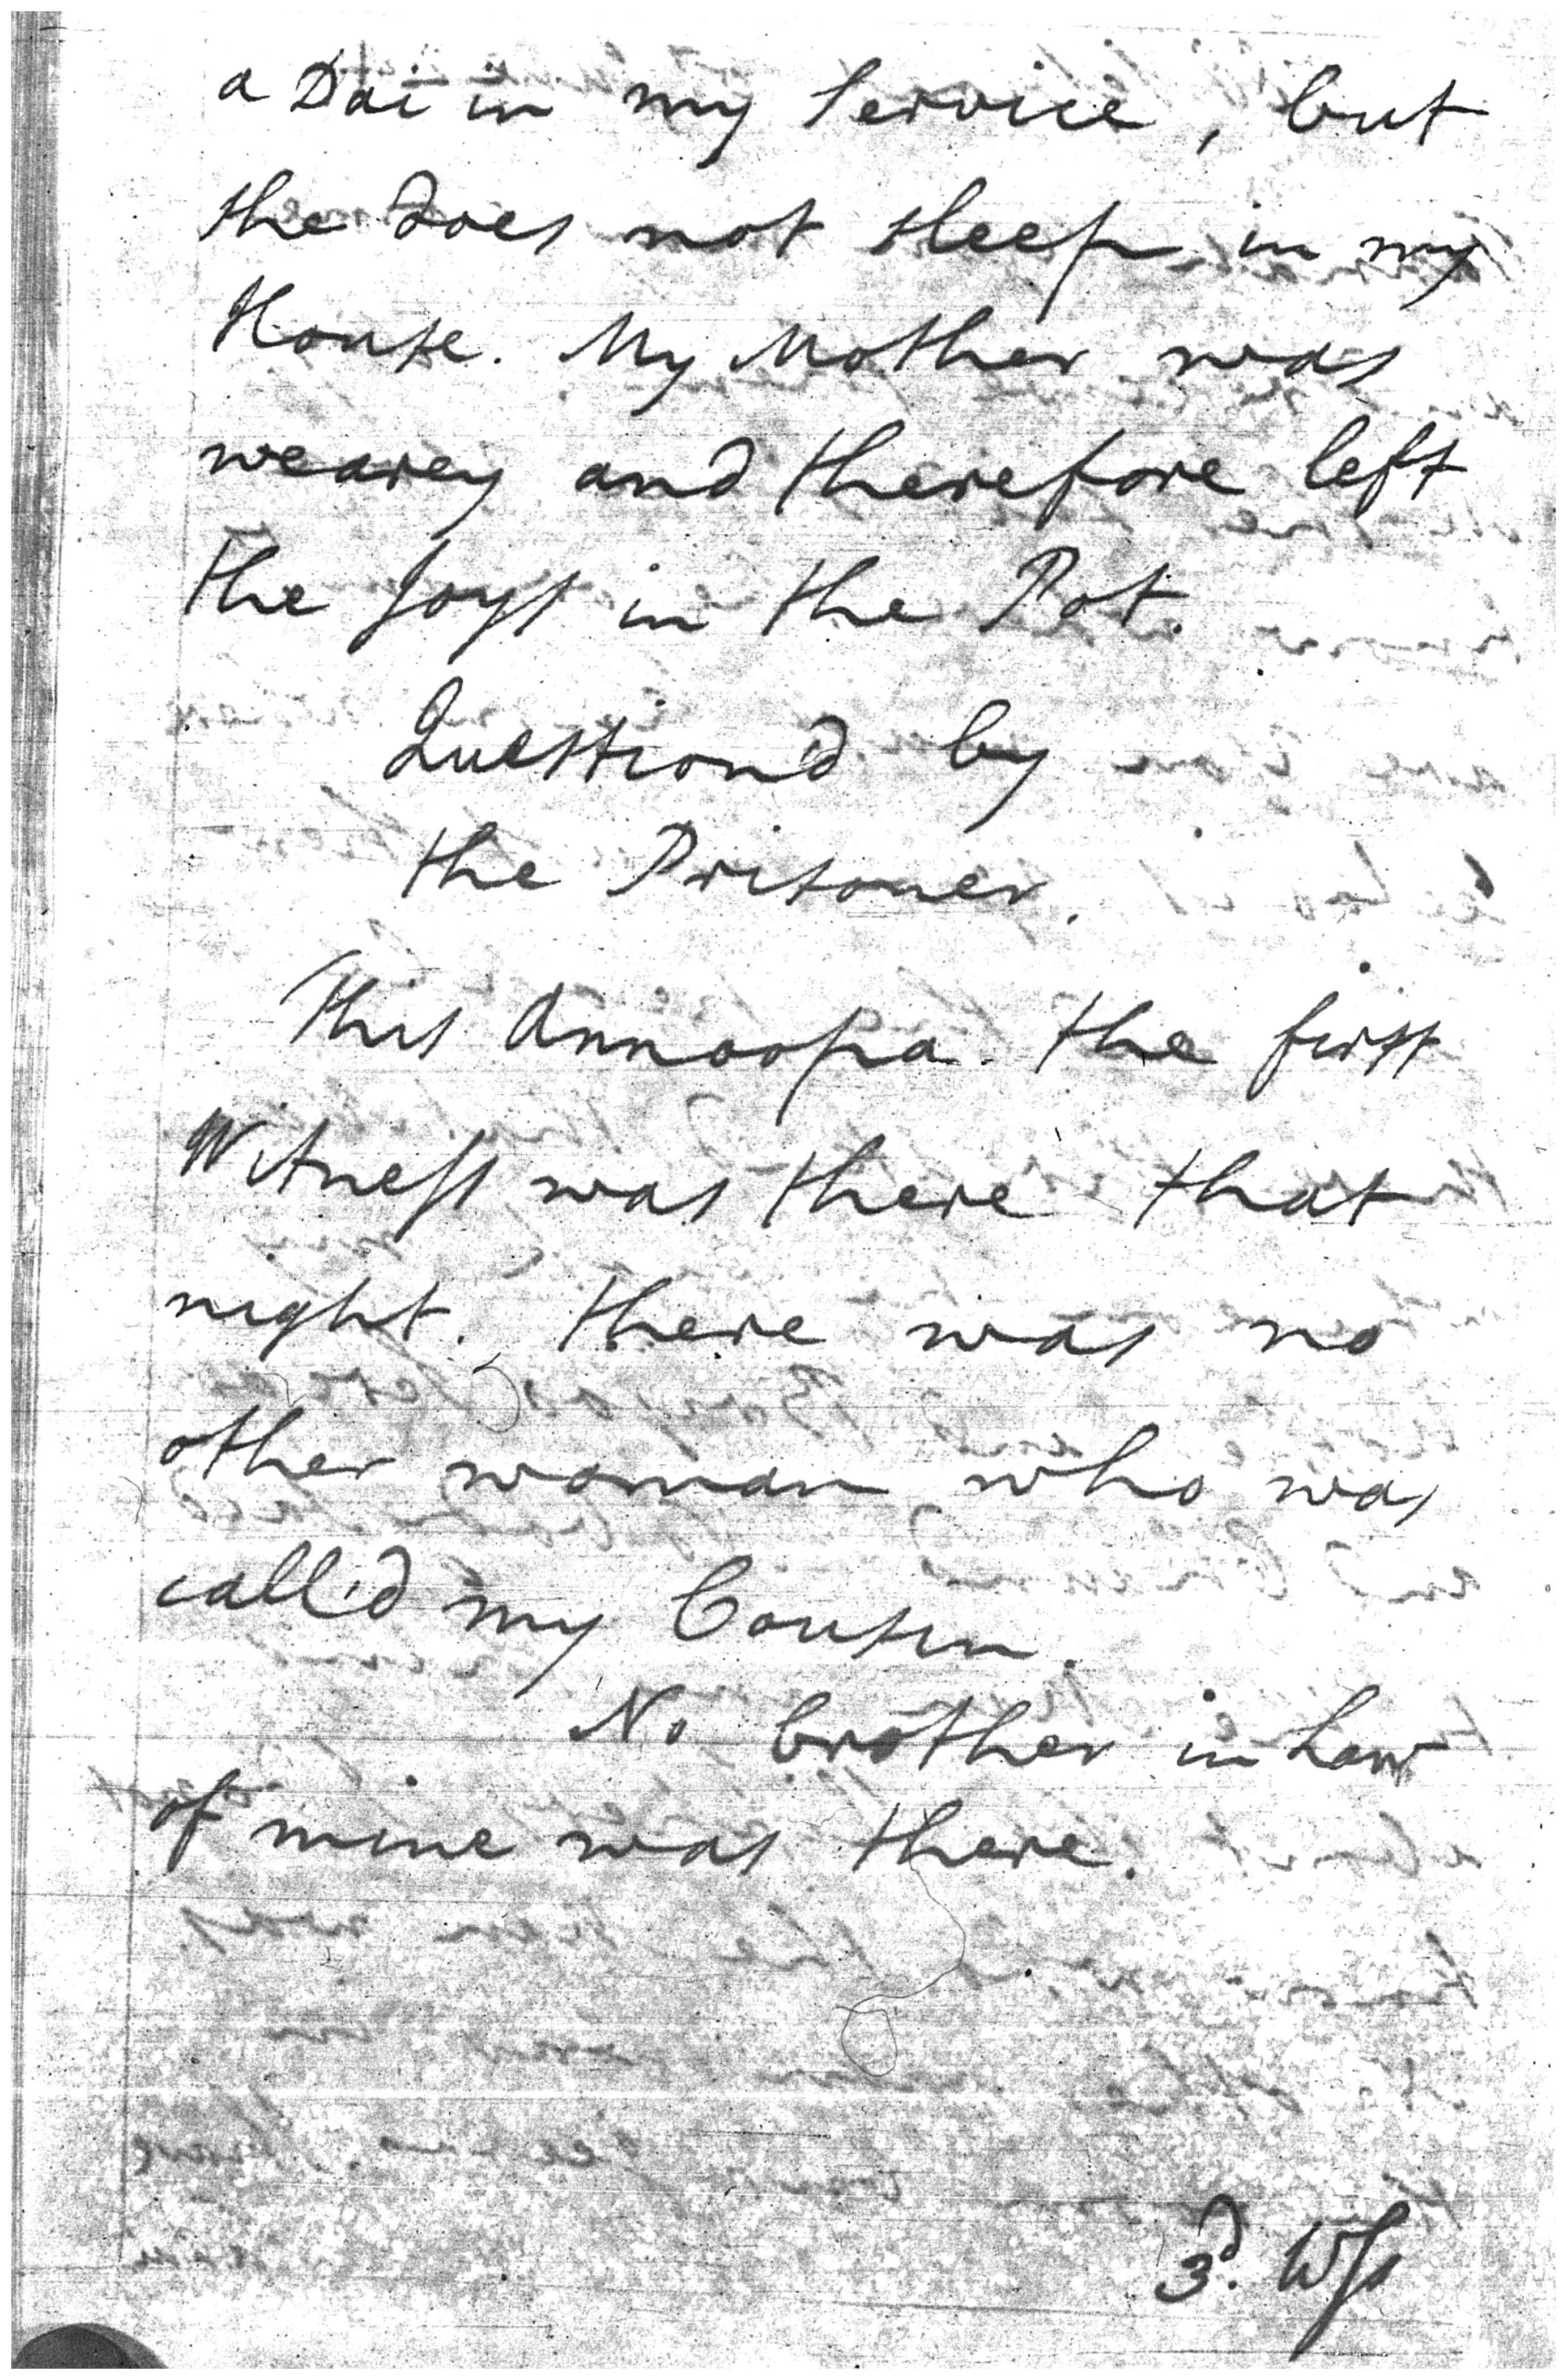 a Dai in my Service, but
she does not sleep in my
House. My Mother was
wearey and therefore left
the Joys in the Pot.
Question'd by
the Prisoner.
This Annoopa the first
Witness was there that
night. There was no
other woman who was
call'd my Cousin.
No brother in Law
of mine was there.
3d. Wss